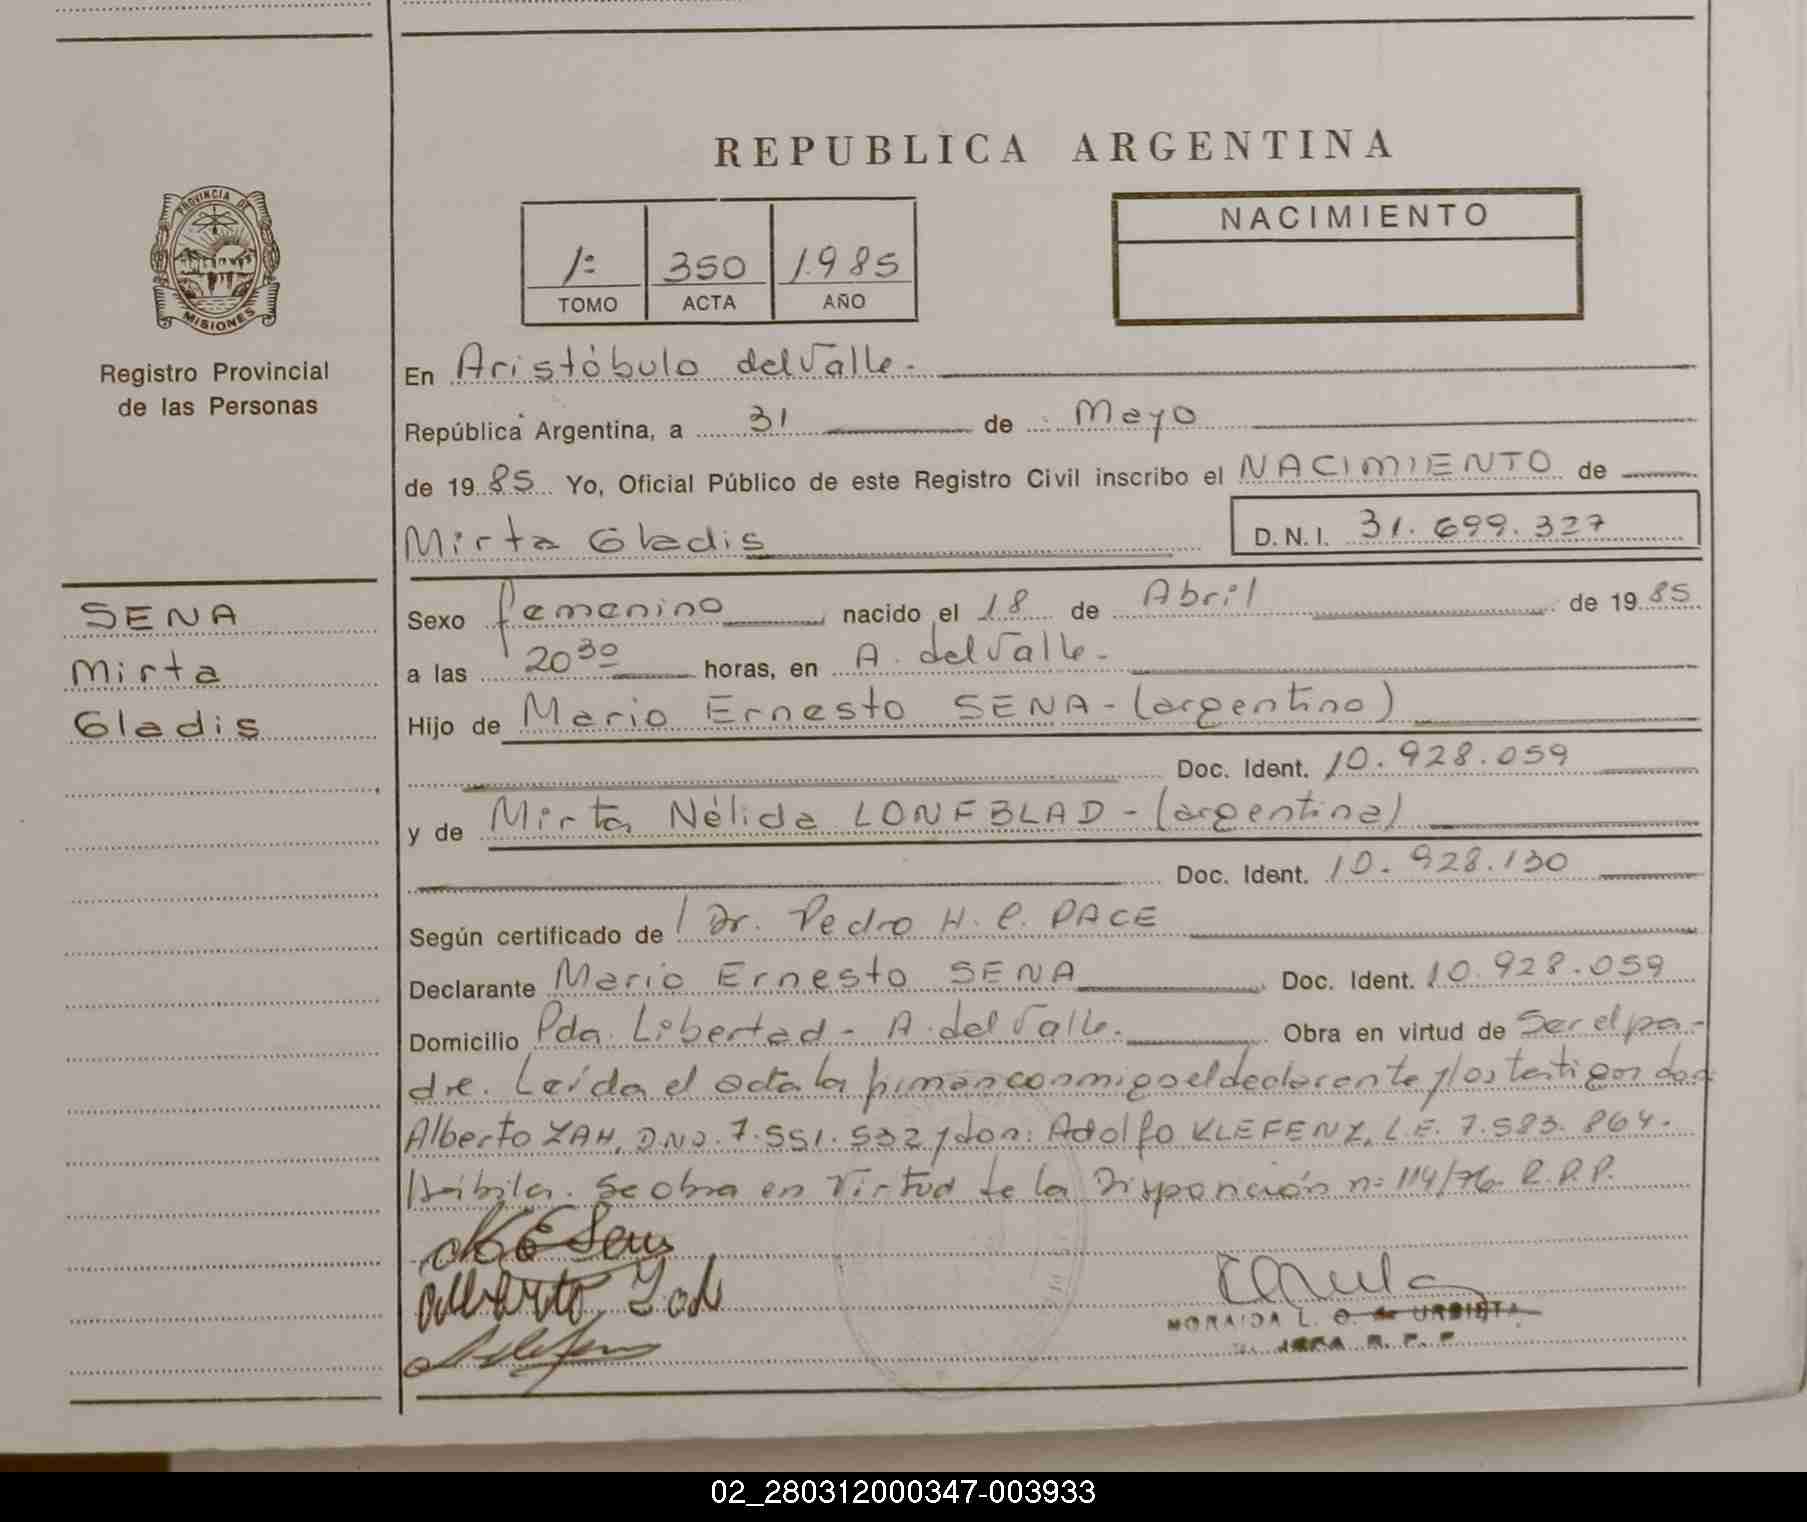 REPUBLICA ARGENTINA
PROVINCIA DE
MISIONES
Registro Provincial
de las Personas
1º 350 1985
TOMO ACTA AÑO
NACIMIENTO
En Aristóbulo del Valle.
República Argentina, a 31 de Mayo
de 1985 Yo, Oficial Público de este Registro Civil inscribo el NACIMIENTO de
Mirta Gladis D.N.I. 31.699.327
SENA
Mirta
Gladis
Sexo femenino nacido el 18 de Abril de 1985
a las 20 30 horas, en A. del Valle.
Hijo de Mario Ernesto SENA - (argentino)
Doc. Ident. 10.928.059
y de Mirta Nélida LONFBLAD - (argentina)
Doc. Ident. 10.928.130
Según certificado de Dr. Pedro H. C. PACE
Declarante Mario Ernesto SENA Doc. Ident. 10.928.059
Domicilio Pda. Libertad - A. del Valle. Obra en virtud de Ser el pa-
dre. Leída el acta la firman conmigo el declarante y los testigos don
Alberto ZAH, D.N.I. 7.551.532 y don: Adolfo KLEFENZ, L.E. 7.583.864.
Hábiles. Se obra en Virtud de la Disposición nº 114/76 R.P.P.
Alberto Zah
MORAIDA L. O. de URBIETA
JEFA R. P. P.
02_280312000347-003933